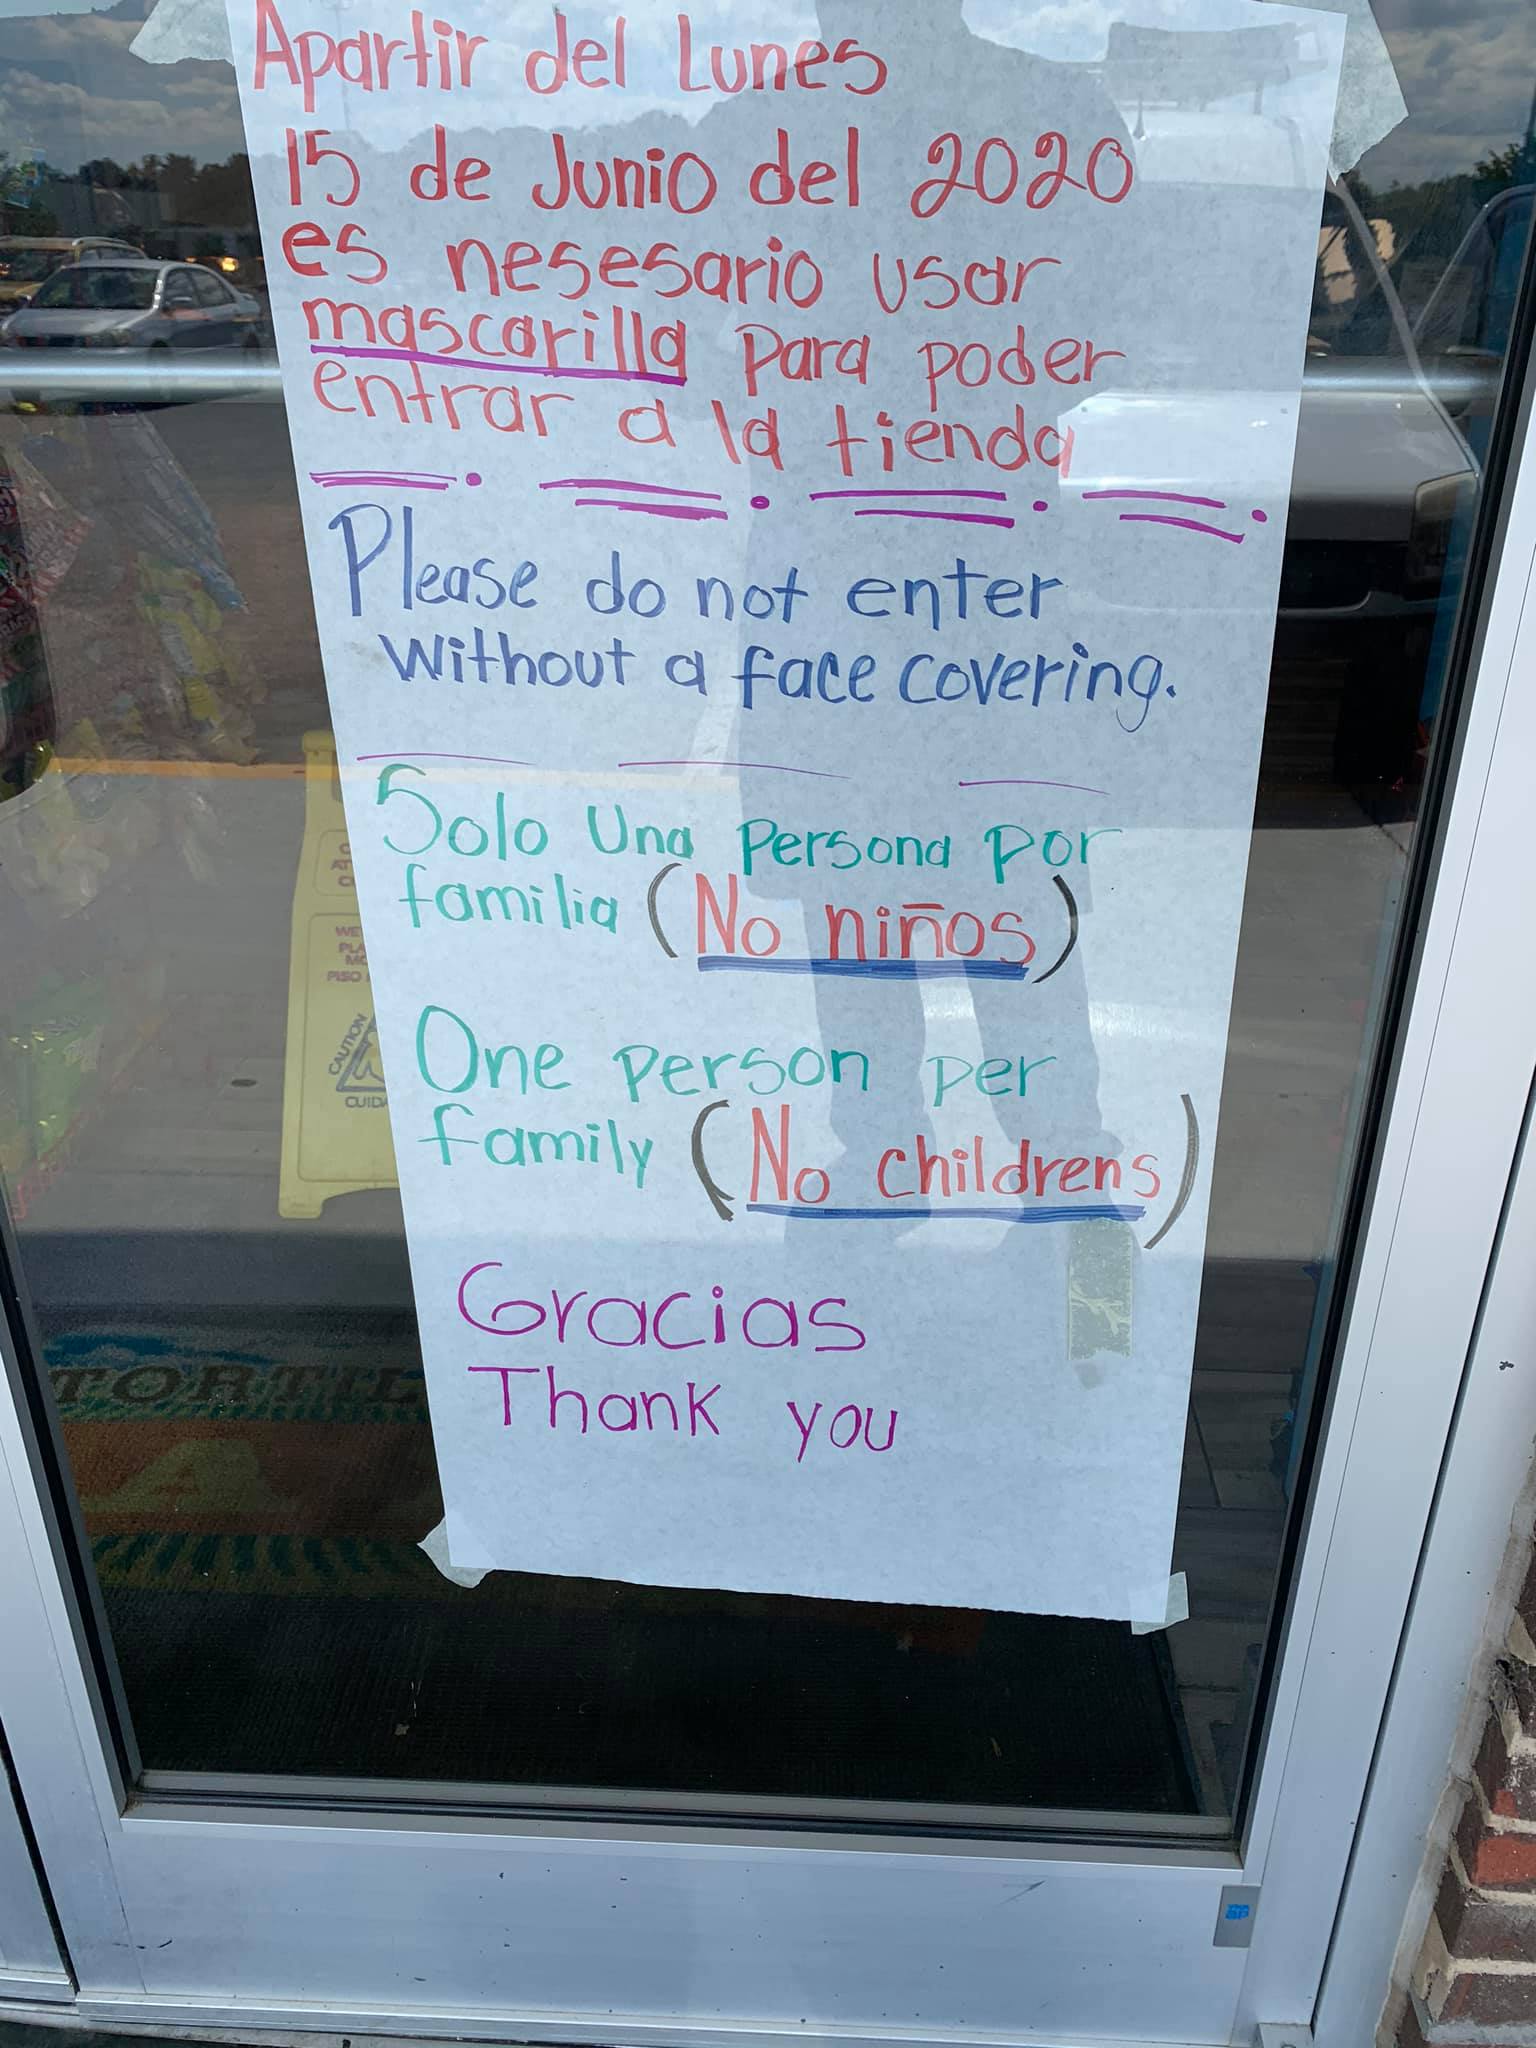 Apartir del Lunes
15 de Junio del 2020
es nesesario usar
mascarilla para poder
entrar a la tienda
Please do not enter
without a face covering.
Solo Una persona por
familia (No niños)
One person per
family (No childrens)
Gracias
Thank you
PISO
CAUTION
TORTIL